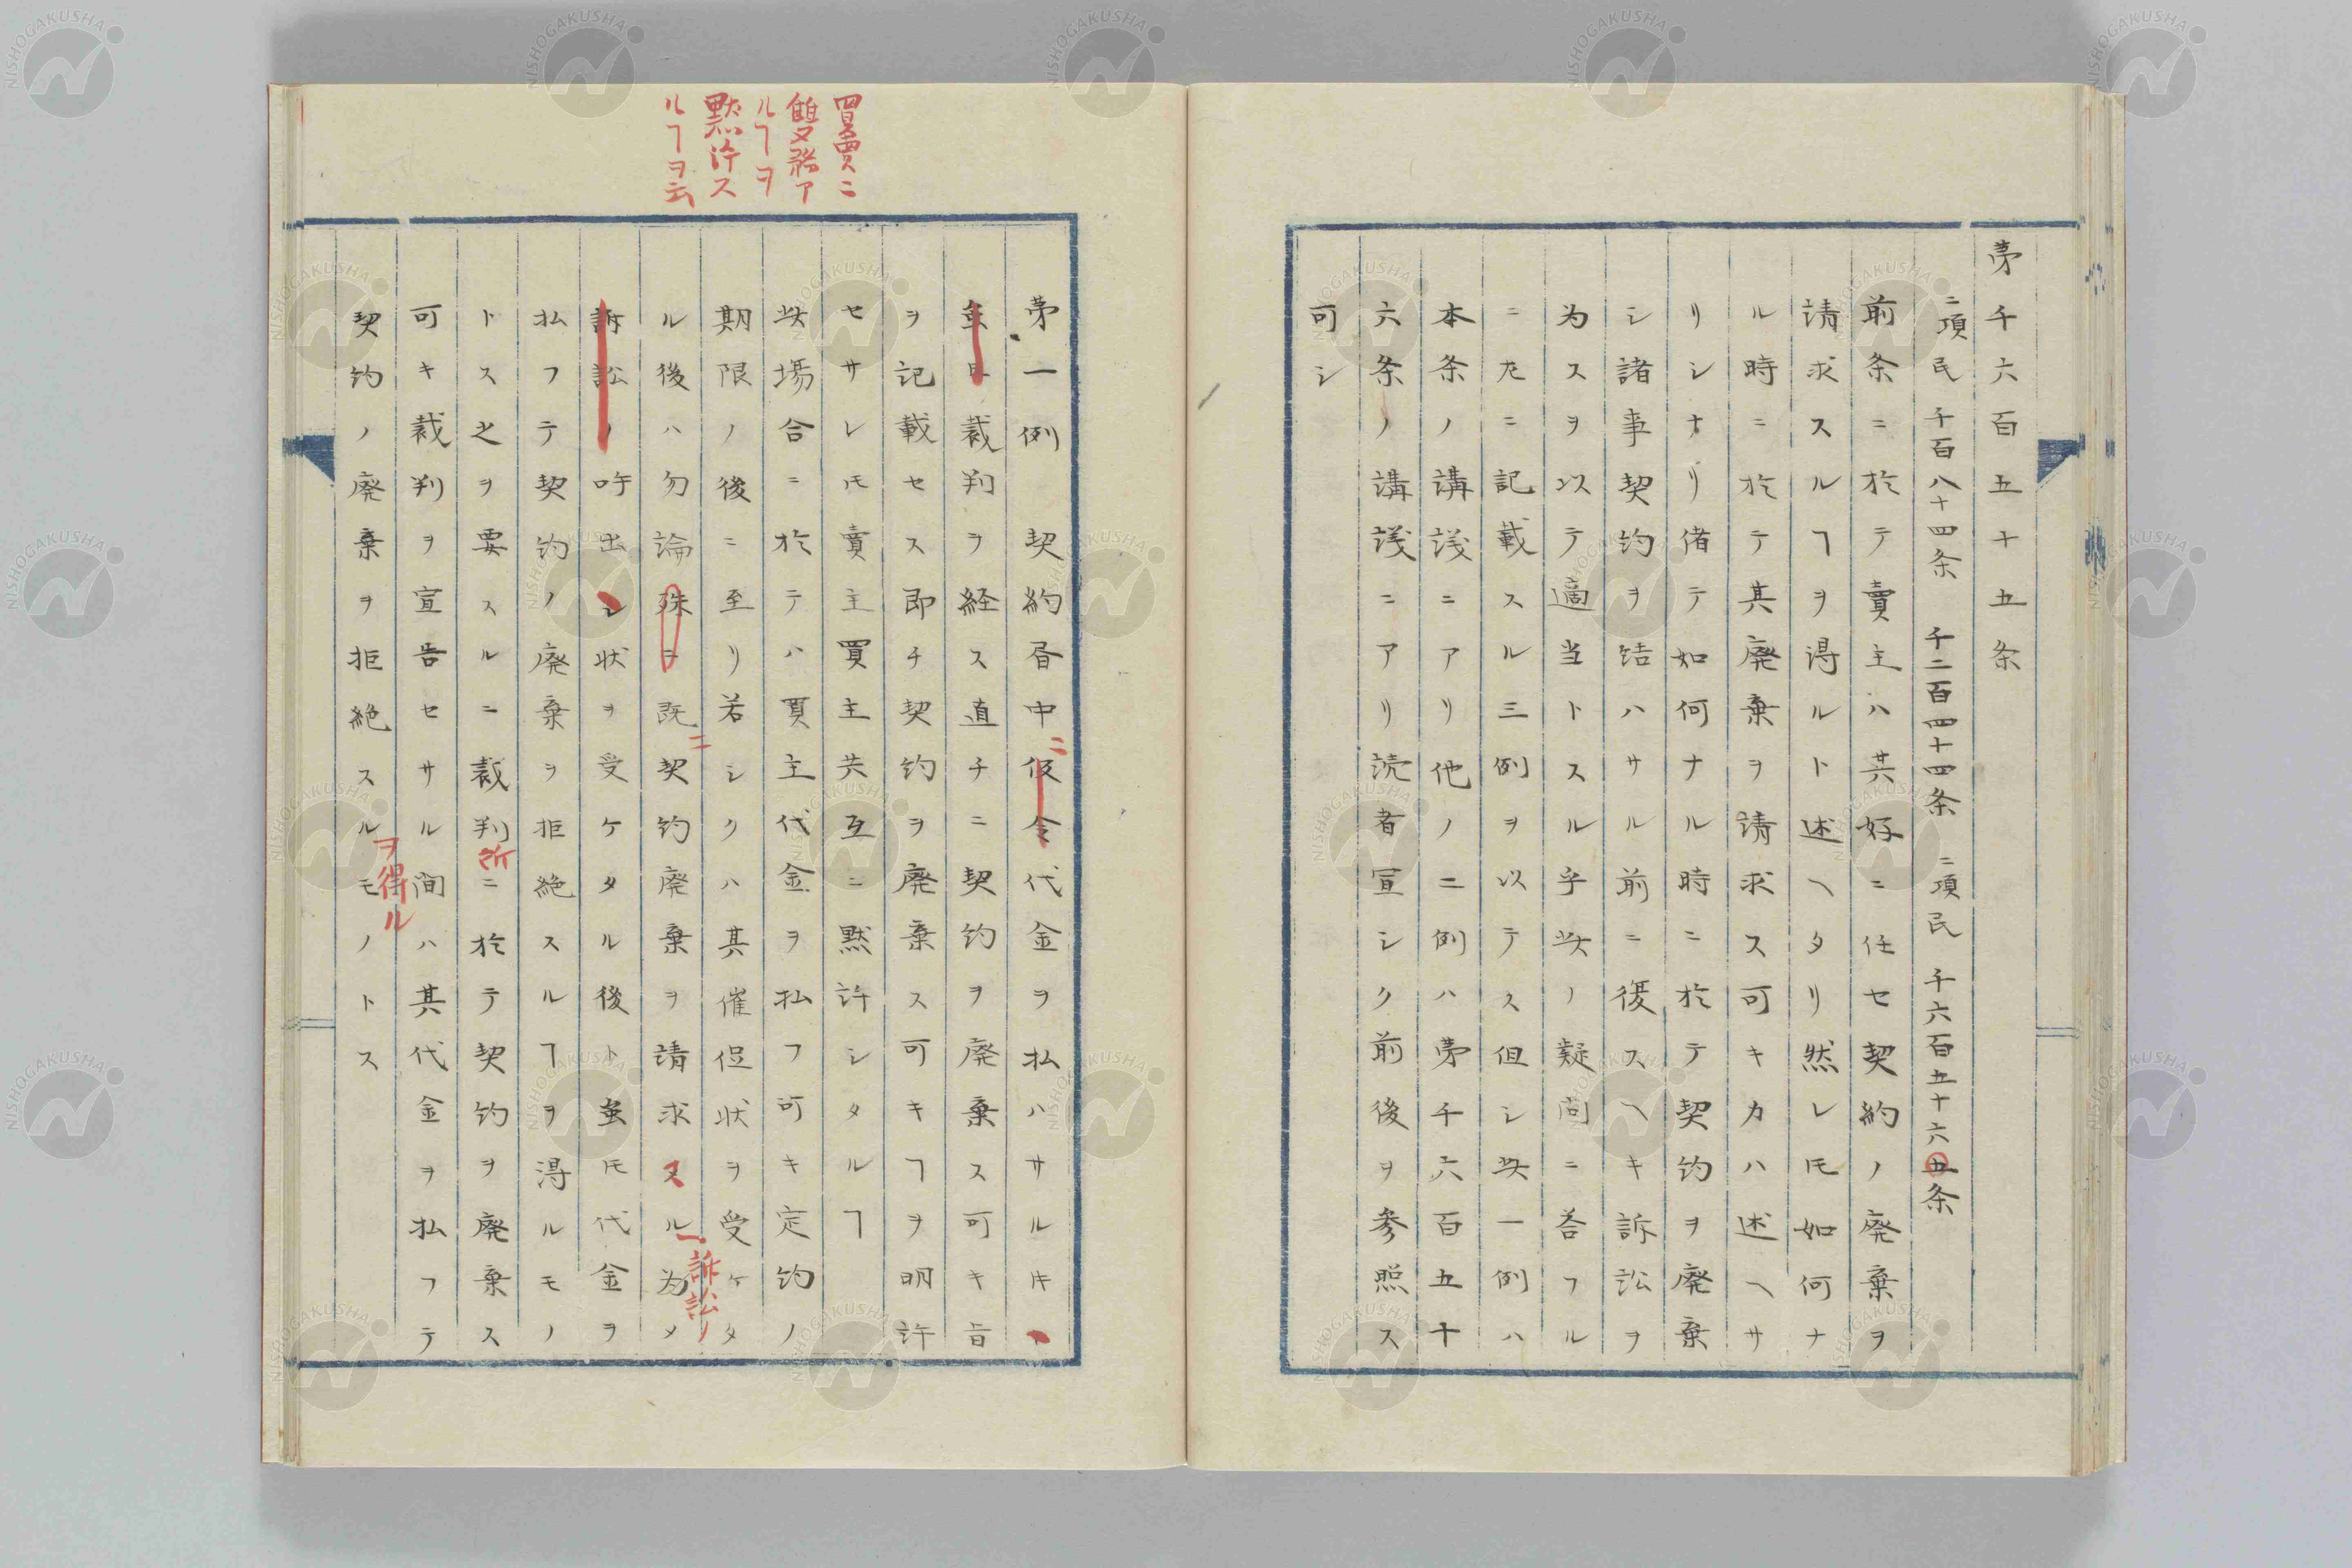 第千六百五十五条
二項民 千百八十四条 千二百四十四条 二項民 千六百五十六五条
前条ニ於テ賣主ハ其好ニ任セ契約ノ廃棄ヲ
請求スルヿヲ得ルト述ヘタリ然レ𪜈如何ナ
ル時ニ於テ其廃棄ヲ請求ス可キカハ述ヘサ
リシナリ偖テ如何ナル時ニ於テ契約ヲ廃棄
シ諸事契約ヲ結ハサル前ニ復スヘキ訴訟ヲ
為スヲ以テ適当トスル乎此ノ疑問ニ荅フル
ニ左ニ記載スル三例ヲ以テス但シ此一例ハ
本条ノ講義ニアリ他ノ二例ハ第千六百五十
六条ノ講義ニアリ読者宜シク前後ヲ参照ス
可シ
買賣ニ
雙務ア
ルヿヲ
黙許ス
ルヿヲ云
第一例 契約書中ニ仮令代金ヲ払ハサルキ
裁判ヲ経ス直チニ契約ヲ廃棄ス可キ旨
ヲ記載セス即チ契約ヲ廃棄ス可キヿヲ明許
セサレ𪜈賣主買主共互ニ黙許シタルヿ
此場合ニ於テハ買主代金ヲ払フ可キ定約ノ
期限ノ後ニ至リ若シクハ其催促状ヲ受ケタ
ル後ハ勿論殊ニ既ニ契約廃棄ヲ請求ヌル為メ
訴訟ノ
訴訟ノ呼出シ状ヲ受ケタル後ト虽𪜈代金ヲ
払フテ契約ノ廃棄ヲ拒絶スルヿヲ得ルモノ
トス之ヲ要スルニ裁判所ニ於テ契約ヲ廃棄ス
可キ裁判ヲ宣告セサル間ハ其代金ヲ払フテ
契約ノ廃棄ヲ拒絶スルヲ得ルモノトス